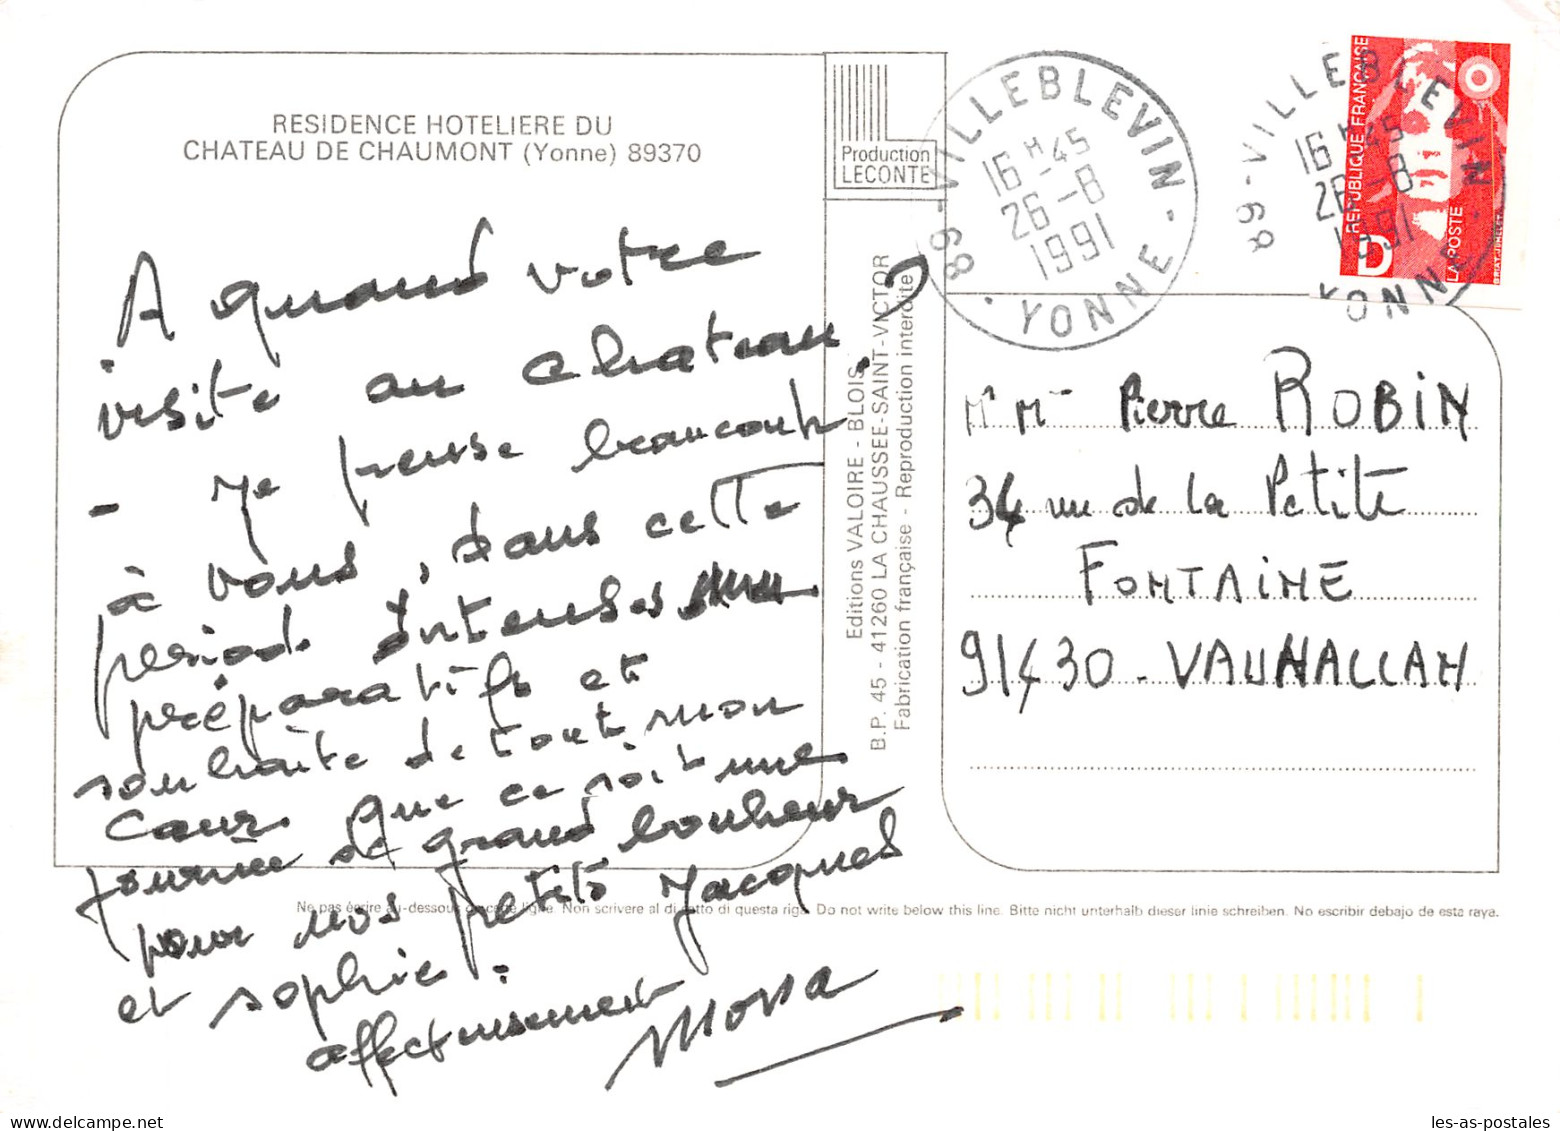 RESIDENCE HOTELIERE DU
CHATEAU DE CHAUMONT (Yonne) 89370
A quand votre
visite au chateau ?
- Je pense beaucoup
à vous, dans cette
période intenses
préparatifs et
souhaite de tout mon
cœur que ce soit une
journée de grand bonheur
pour nos petits Jacques
et Sophie.
affectueusement
Production
LECONTE
Editions VALOIRE - BLOIS
B.P. 45 - 41260 LA CHAUSSEE-SAINT-VICTOR
Fabrication française - Reproduction interdite
89 - VILLEBLEVIN - YONNE
16 H 45
26 - 8
1991
89 - VILLEBLEVIN - YONNE
16 H 45
26 - 8
1991
REPUBLIQUE FRANÇAISE
D
LA POSTE
Mr Mme Pierre ROBIN
34 rue de la Petite
FONTAINE
91430 - VAUHALLAN
Ne pas écrire au-dessous de cette ligne. Non scrivere al di sotto di questa riga. Do not write below this line. Bitte nicht unterhalb dieser linie schreiben. No escribir debajo de esta raya.
les-as-postales